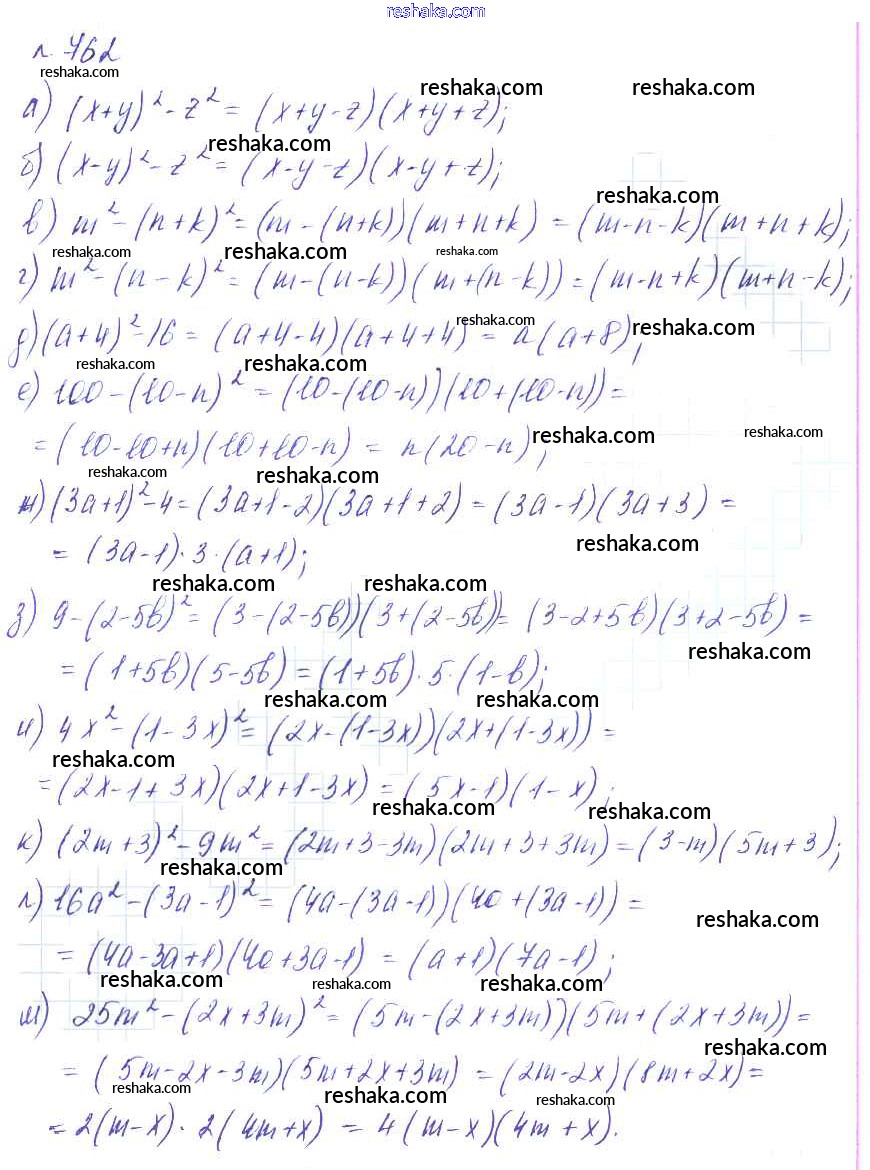 reshaka.com
№ 762
reshaka.com
reshaka.com reshaka.com
а) (x+y)² - z² = (x+y-z)(x+y+z);
reshaka.com
б) (x-y)² - z² = (x-y-z)(x-y+z);
reshaka.com
в) m² - (n+k)² = (m-(n+k))(m+n+k) = (m-n-k)(m+n+k);
reshaka.com reshaka.com reshaka.com
г) m² - (n-k)² = (m-(n-k))(m+(n-k)) = (m-n+k)(m+n-k);
reshaka.com reshaka.com reshaka.com
д) (a+4)² - 16 = (a+4-4)(a+4+4) = a(a+8);
reshaka.com reshaka.com
е) 100 - (10-n)² = (10-(10-n))(10+(10-n)) =
= (10-10+n)(10+10-n) = n(20-n);
reshaka.com reshaka.com
reshaka.com reshaka.com
ж) (3a+1)² - 4 = (3a+1-2)(3a+1+2) = (3a-1)(3a+3) =
= (3a-1)·3·(a+1);
reshaka.com
reshaka.com reshaka.com
з) 9 - (2-5b)² = (3-(2-5b))(3+(2-5b)) = (3-2+5b)(3+2-5b) =
reshaka.com
= (1+5b)(5-5b) = (1+5b)·5·(1-b);
reshaka.com reshaka.com
и) 4x² - (1-3x)² = (2x-(1-3x))(2x+(1-3x)) =
reshaka.com
= (2x-1+3x)(2x+1-3x) = (5x-1)(1-x);
reshaka.com reshaka.com
к) (2m+3)² - 9m² = (2m+3-3m)(2m+3+3m) = (3-m)(5m+3);
reshaka.com reshaka.com
л) 16a² - (3a-1)² = (4a-(3a-1))(4a+(3a-1)) =
reshaka.com
= (4a-3a+1)(4a+3a-1) = (a+1)(7a-1);
reshaka.com reshaka.com reshaka.com
м) 25m² - (2x+3m)² = (5m-(2x+3m))(5m+(2x+3m)) =
reshaka.com
= (5m-2x-3m)(5m+2x+3m) = (2m-2x)(8m+2x) =
reshaka.com reshaka.com reshaka.com
= 2(m-x)·2(4m+x) = 4(m-x)(4m+x).